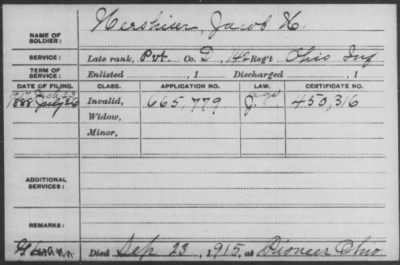 NAME OF SOLDIER: Hershiser, Jacob H.
SERVICE: Late rank, Pvt. Co. D, 142 Reg't Ohio Inf
TERM OF SERVICE: Enlisted , 1 Discharged , 1
DATE OF FILING. CLASS. APPLICATION NO. LAW. CERTIFICATE NO.
1888 July 26 Invalid, 665,779 450,316
Widow,
Minor,
ADDITIONAL SERVICES:
REMARKS:
Died Sep 23, 1915, at Pioneer Ohio